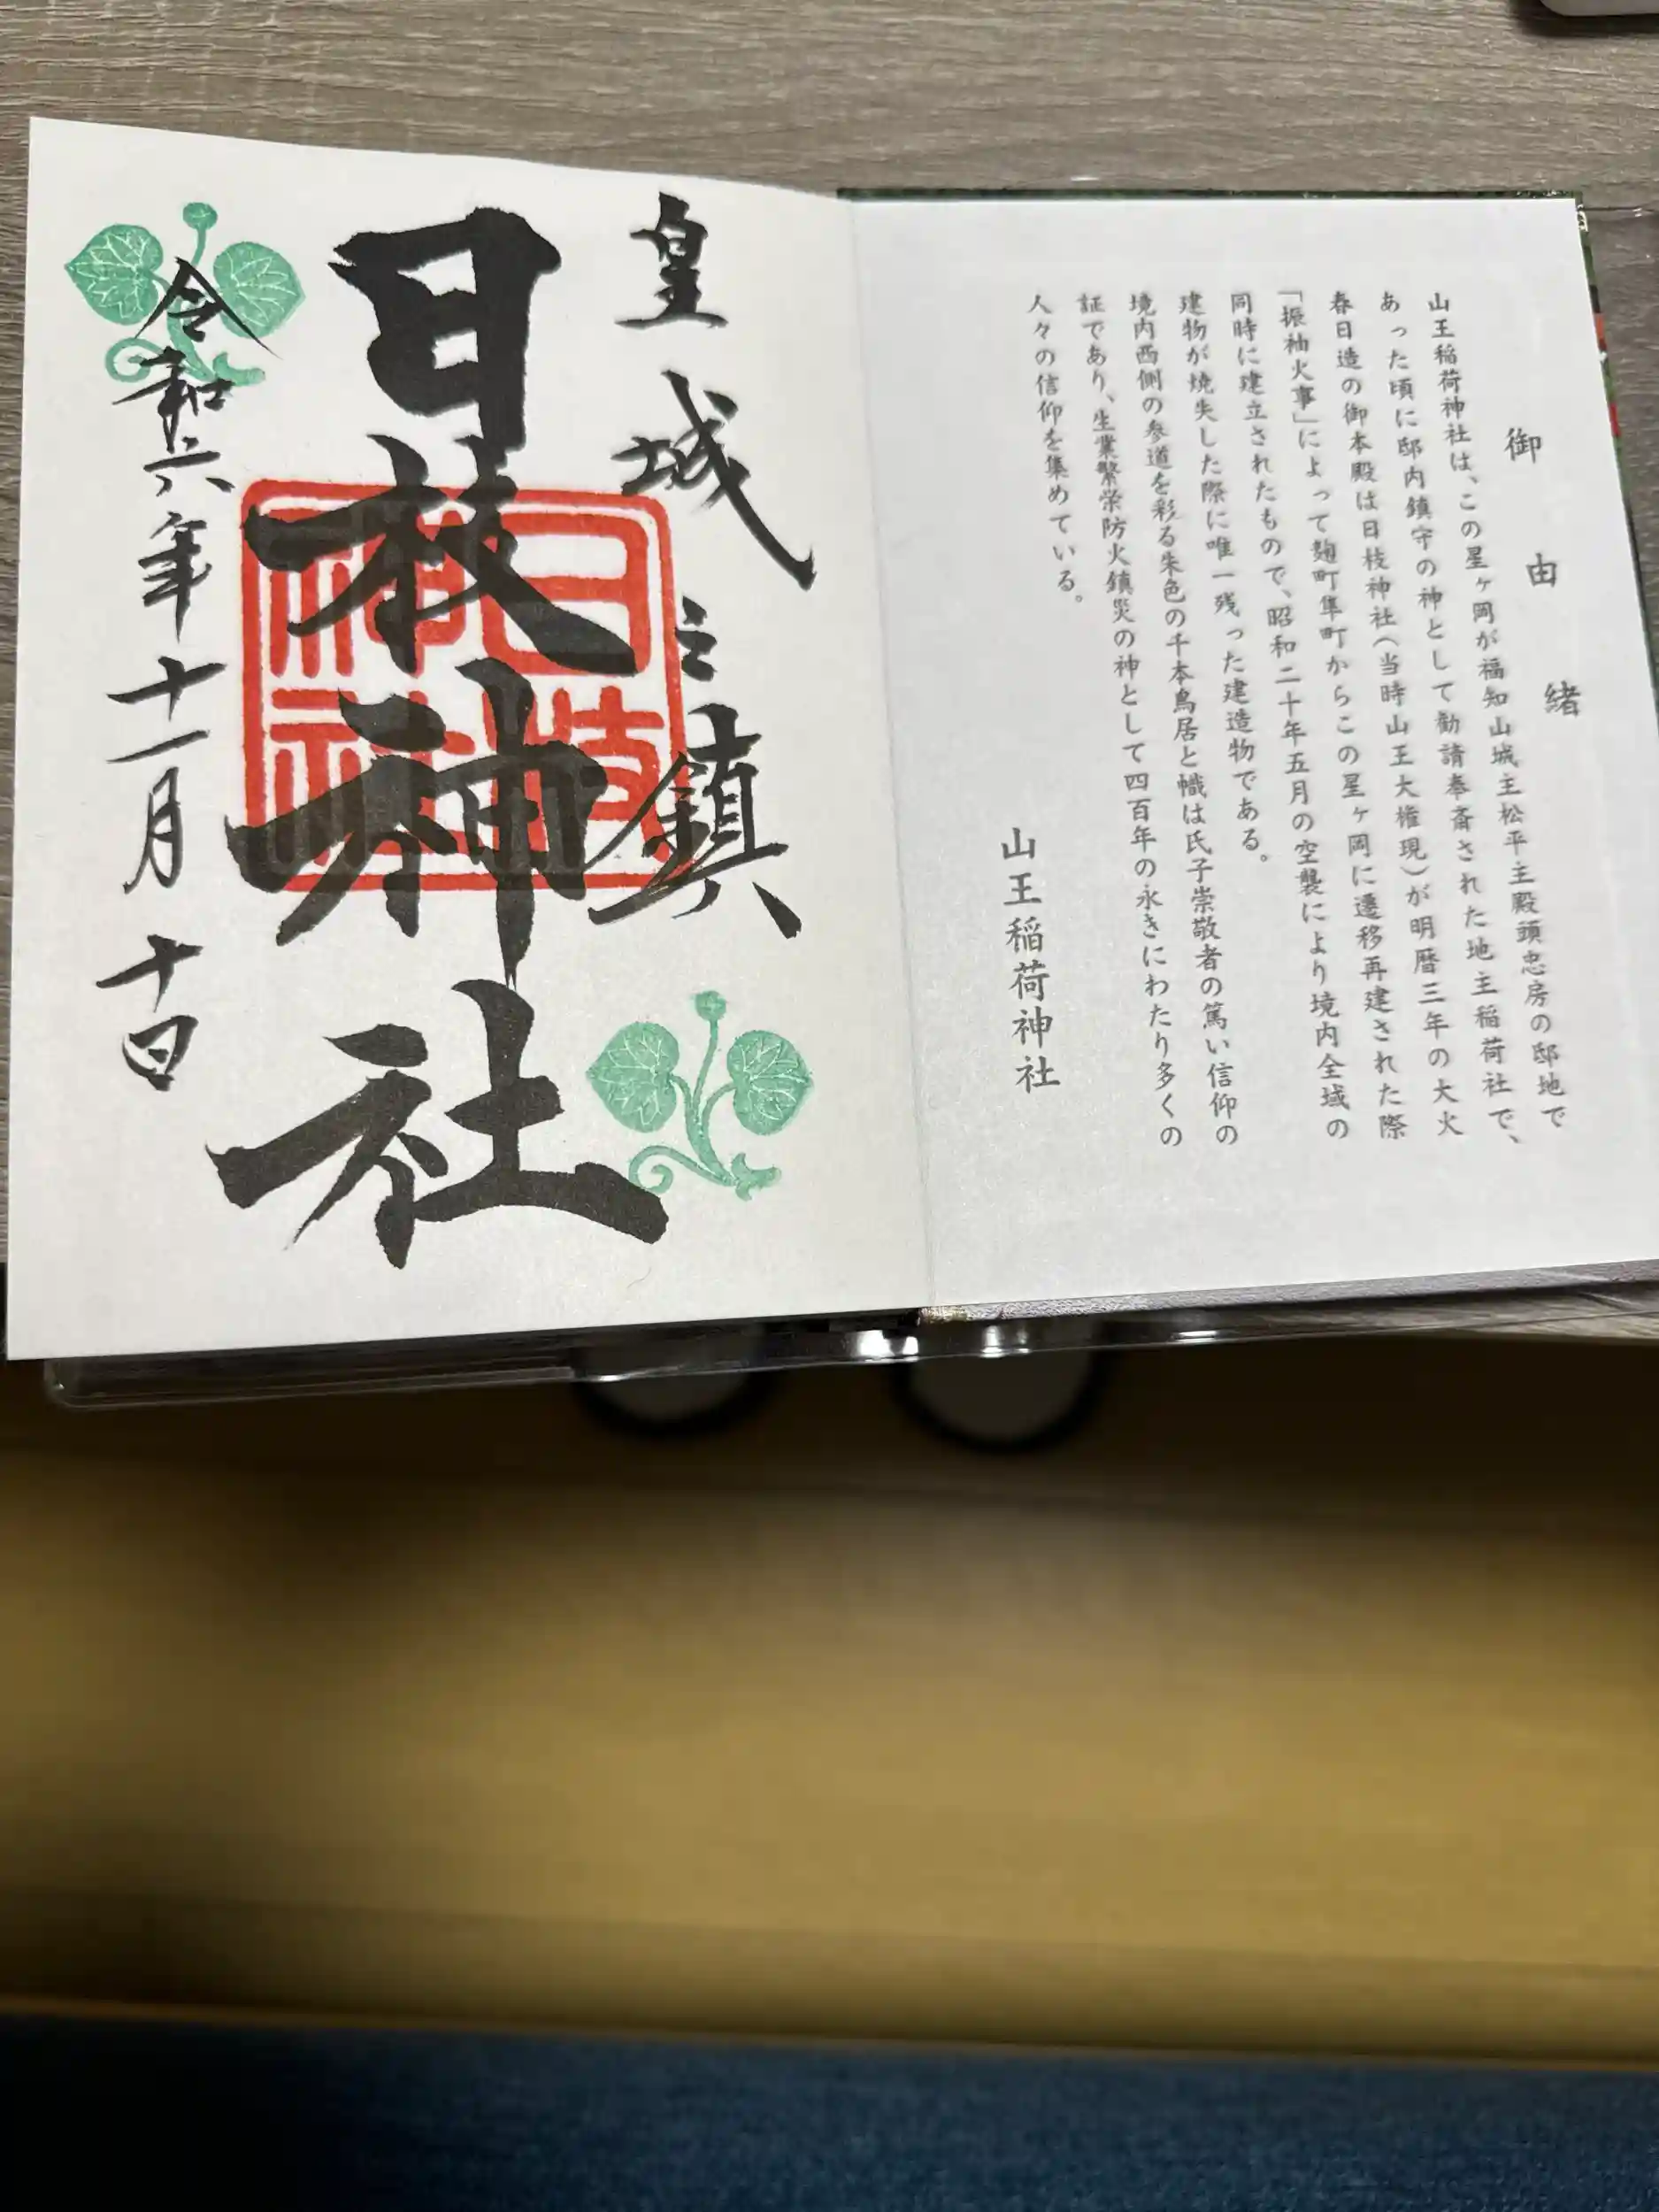 御由緒
山王稲荷神社は、この星ヶ岡が福知山城主松平主殿頭忠房の邸地で
あった頃に邸内鎮守の神として勧請奉斎された地主稲荷社で、
春日造の御本殿は日枝神社（当時山王大権現）が明暦三年の大火
「振袖火事」によって麹町隼町からこの星ヶ岡に遷移再建された際
同時に建立されたもので、昭和二十年五月の空襲により境内全域の
建物が焼失した際に唯一残った建造物である。
境内西側の参道を彩る朱色の千本鳥居と幟は氏子崇敬者の篤い信仰の
証であり、生業繁栄防火鎮災の神として四百年の永きにわたり多くの
人々の信仰を集めている。
山王稲荷神社
皇城之鎮
日枝神社
日枝
神社
令和六年十一月十日